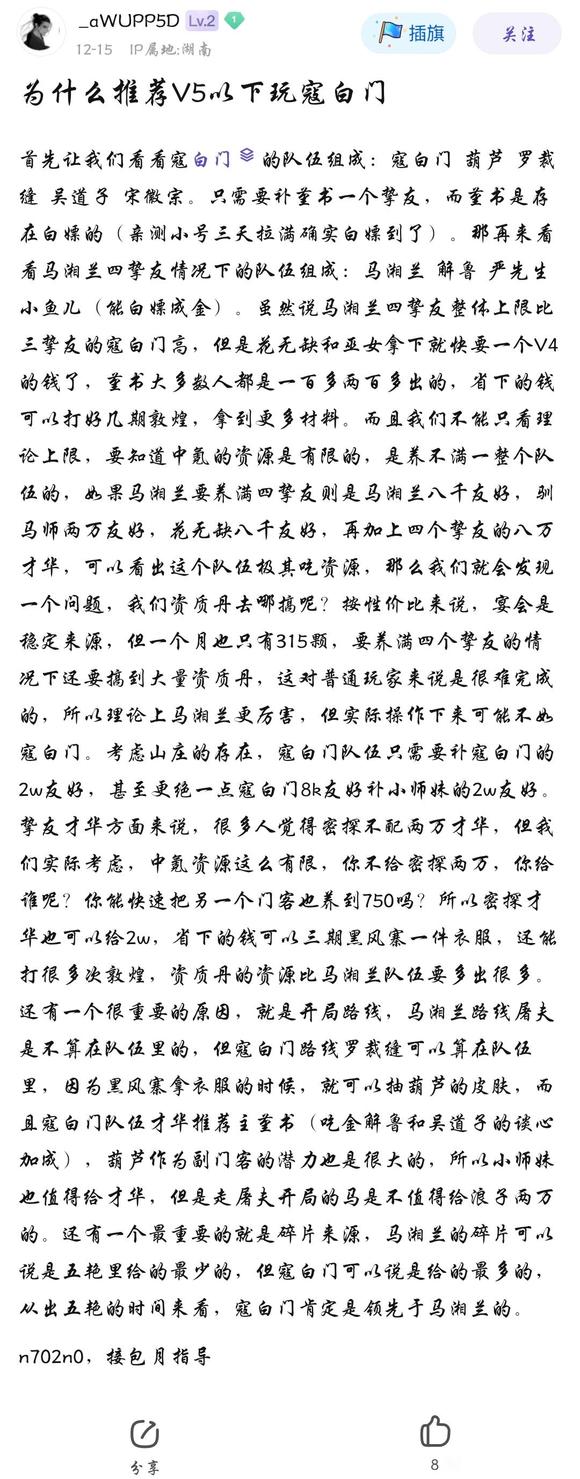 _aWUPP5D Lv.2 1
12-15 IP属地:湖南
插旗
关注
为什么推荐V5以下玩寇白门
首先让我们看看寇白门 的队伍组成：寇白门 葫芦 罗裁
缝 吴道子 宋徽宗。只需要补董书一个挚友，而董书是存
在白嫖的（亲测小号三天拉满确实白嫖到了）。那再来看
看马湘兰四挚友情况下的队伍组成：马湘兰 解鲁 严先生
小鱼儿（能白嫖成金）。虽然说马湘兰四挚友整体上限比
三挚友的寇白门高，但是花无缺和巫女拿下就快要一个V4
的钱了，董书大多数人都是一百多两百多出的，省下的钱
可以打好几期敦煌，拿到更多材料。而且我们不能只看理
论上限，要知道中氪的资源是有限的，是养不满一整个队
伍的，如果马湘兰要养满四挚友则是马湘兰八千友好，驯
马师两万友好，花无缺八千友好，再加上四个挚友的八万
才华，可以看出这个队伍极其吃资源，那么我们就会发现
一个问题，我们资质丹去哪搞呢？按性价比来说，宴会是
稳定来源，但一个月也只有315颗，要养满四个挚友的情
况下还要搞到大量资质丹，这对普通玩家来说是很难完成
的，所以理论上马湘兰更厉害，但实际操作下来可能不如
寇白门。考虑山庄的存在，寇白门队伍只需要补寇白门的
2w友好，甚至更绝一点寇白门8k友好补小师妹的2w友好。
挚友才华方面来说，很多人觉得密探不配两万才华，但我
们实际考虑，中氪资源这么有限，你不给密探两万，你给
谁呢？你能快速把另一个门客也养到750吗？所以密探才
华也可以给2w，省下的钱可以三期黑风寨一件衣服，还能
打很多次敦煌，资质丹的资源比马湘兰队伍要多出很多。
还有一个很重要的原因，就是开局路线，马湘兰路线屠夫
是不算在队伍里的，但寇白门路线罗裁缝可以算在队伍
里，因为黑风寨拿衣服的时候，就可以抽葫芦的皮肤，而
且寇白门队伍才华推荐主董书（吃金解鲁和吴道子的谈心
加成），葫芦作为副门客的潜力也是很大的，所以小师妹
也值得给才华，但是走屠夫开局的马是不值得给浪子两万
的。还有一个最重要的就是碎片来源，马湘兰的碎片可以
说是五艳里给的最少的，但寇白门可以说是给的最多的，
从出五艳的时间来看，寇白门肯定是领先于马湘兰的。
n702n0，接包月指导
分享
8